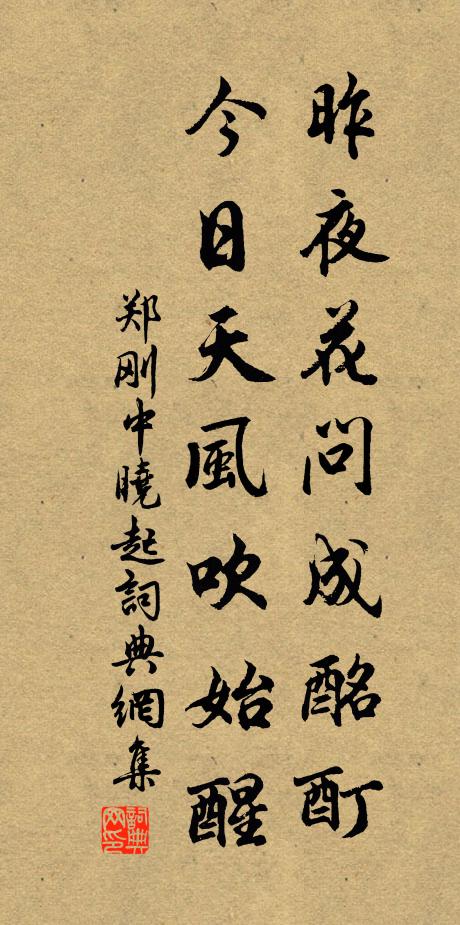 昨夜花問成酩酊
今日天風吹始醒
郑剛中曉起詞典網集
詞典网印